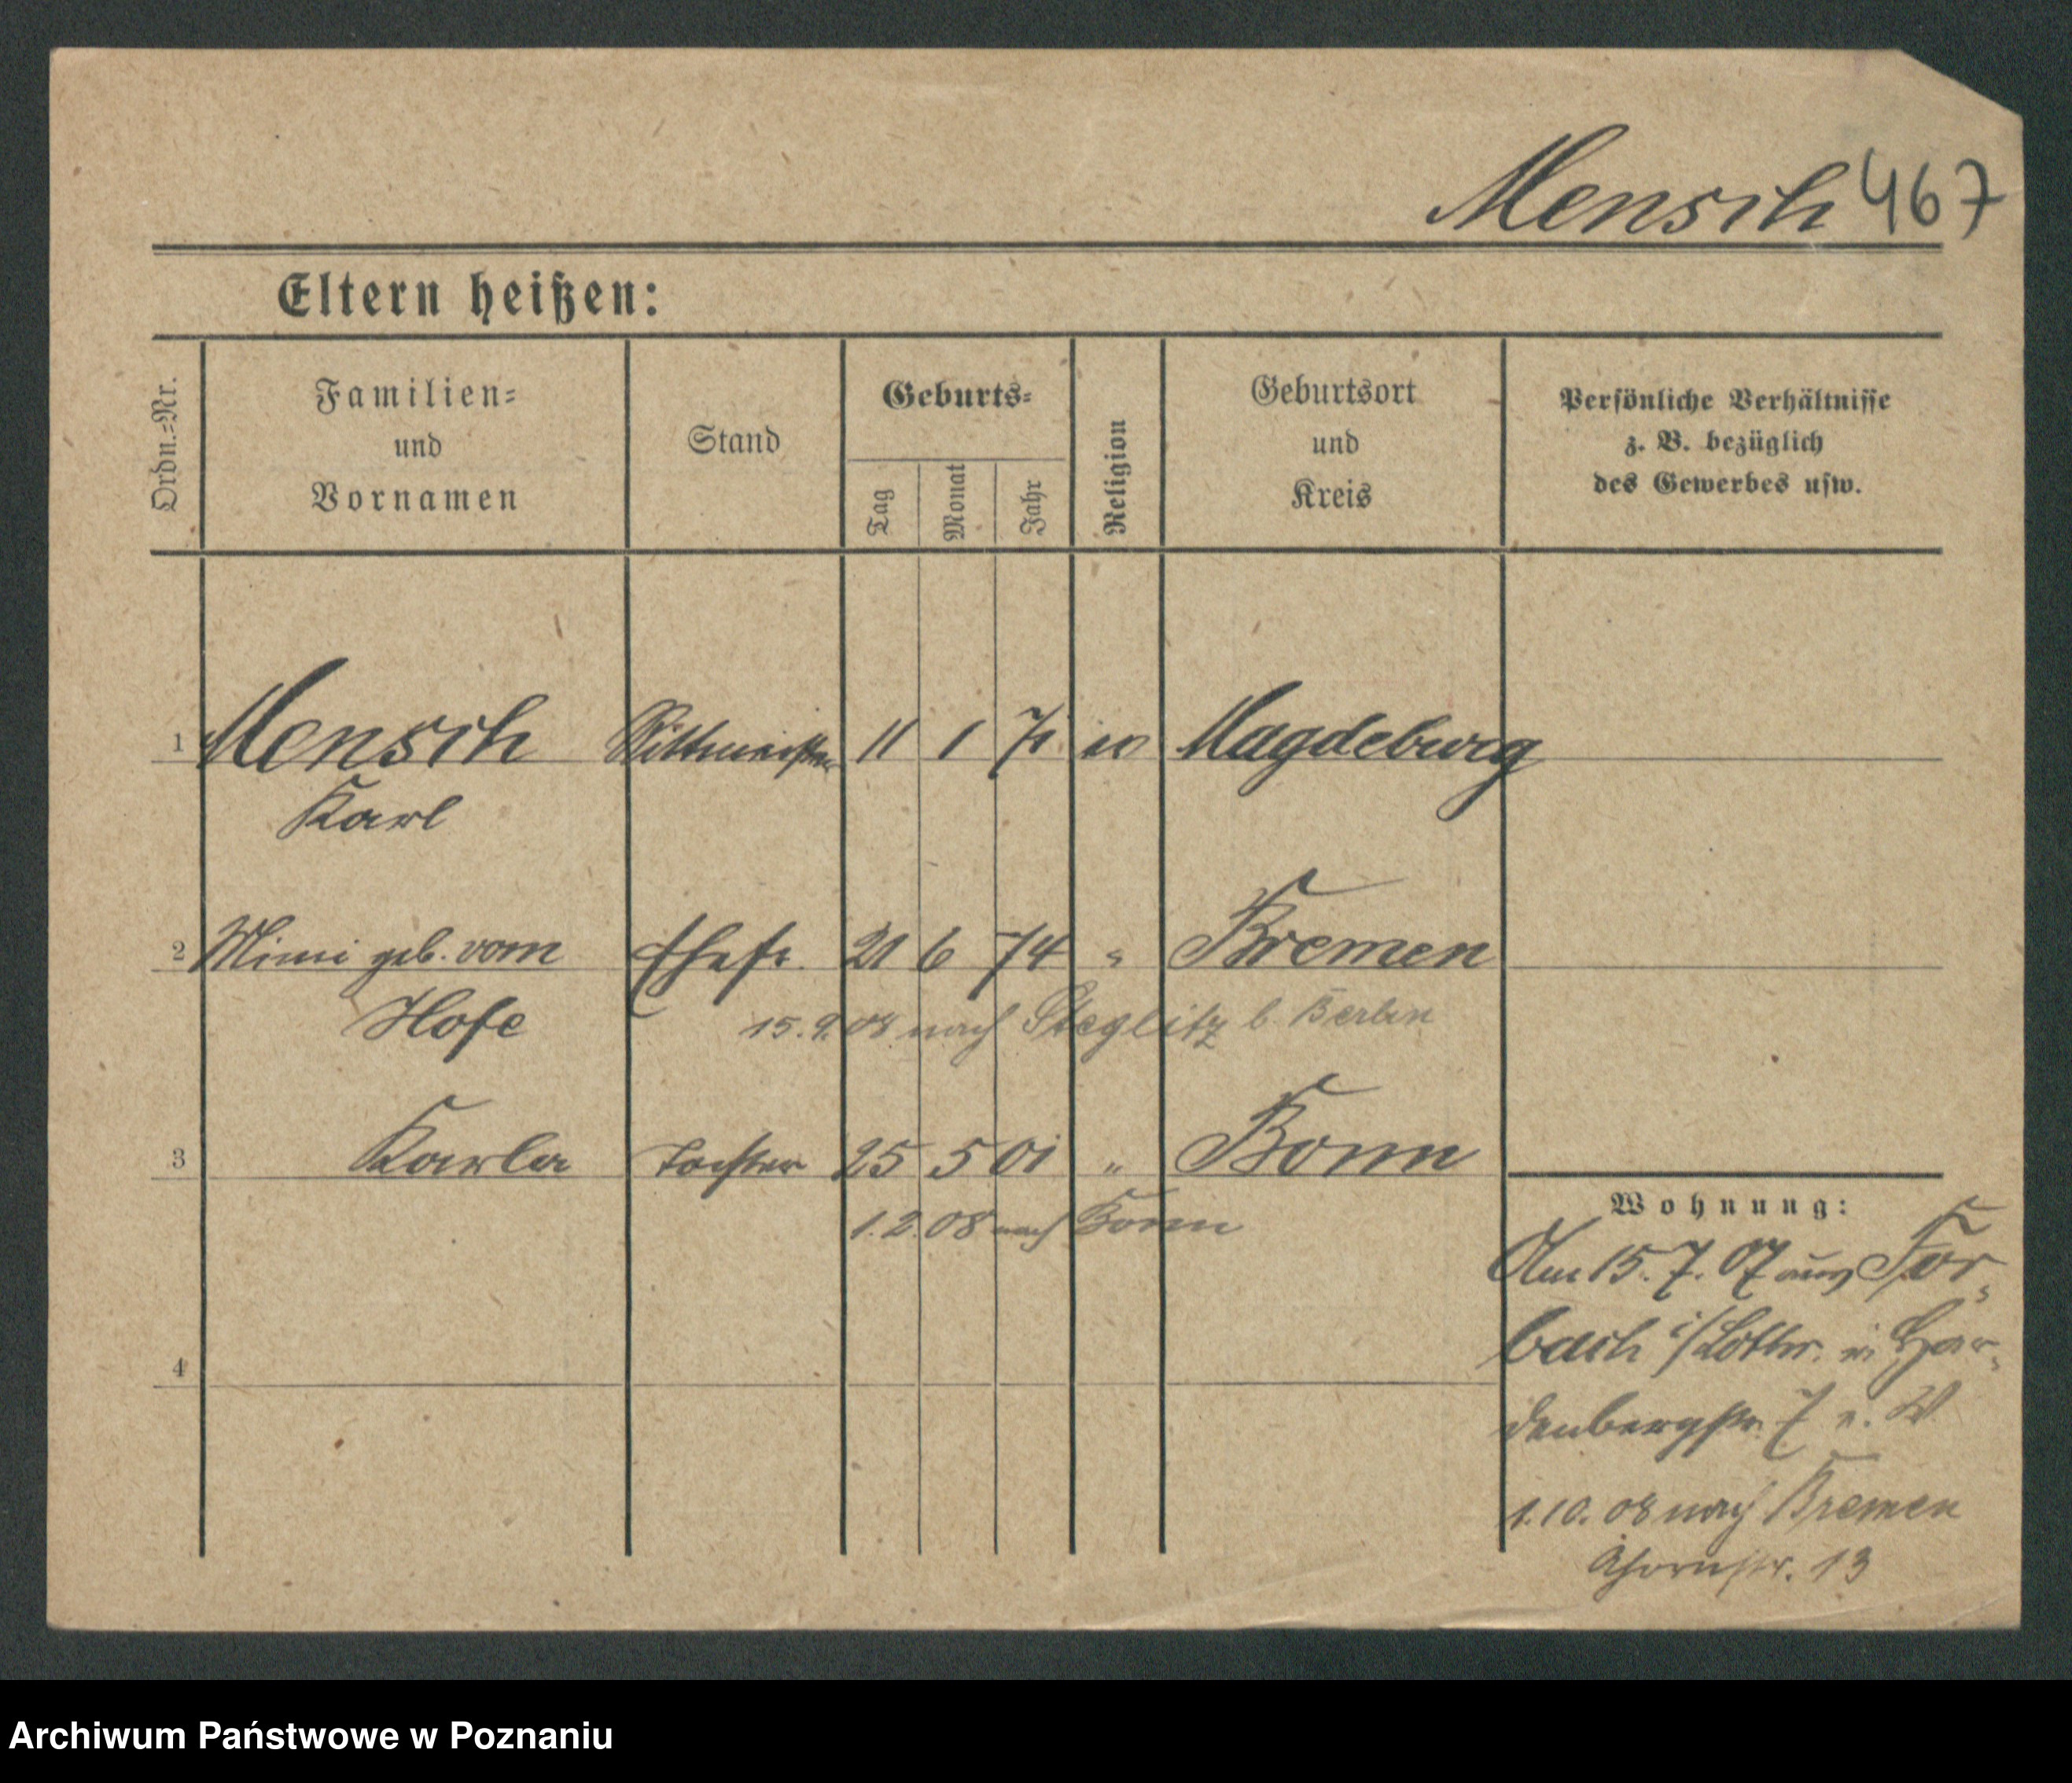 Mensch 467
Eltern heißen:
Ordn.=Nr.
Familien=
und
Vornamen
Stand
Geburts=
Tag
Monat
Jahr
Religion
Geburtsort
und
Kreis
Persönliche Verhältnisse
z. B. bezüglich
des Gewerbes usw.
1 Mensch Rittmeister 11 1 71 ev Magdeburg
Karl
2 Mimi geb. vom Ehefr. 21 6 74 " Bremen
Hofe
15.9.08 nach Steglitz b. Berlin
3 Karla Tochter 25 5 01 " Bonn
1.2.08 nach Bonn
4
Wohnung:
Am 15.7.07 aus For-
bach i/Lothr. in Har-
denbergstr. 7 v. W
1.10.08 nach Bremen
Ahornstr. 13
Archiwum Państwowe w Poznaniu